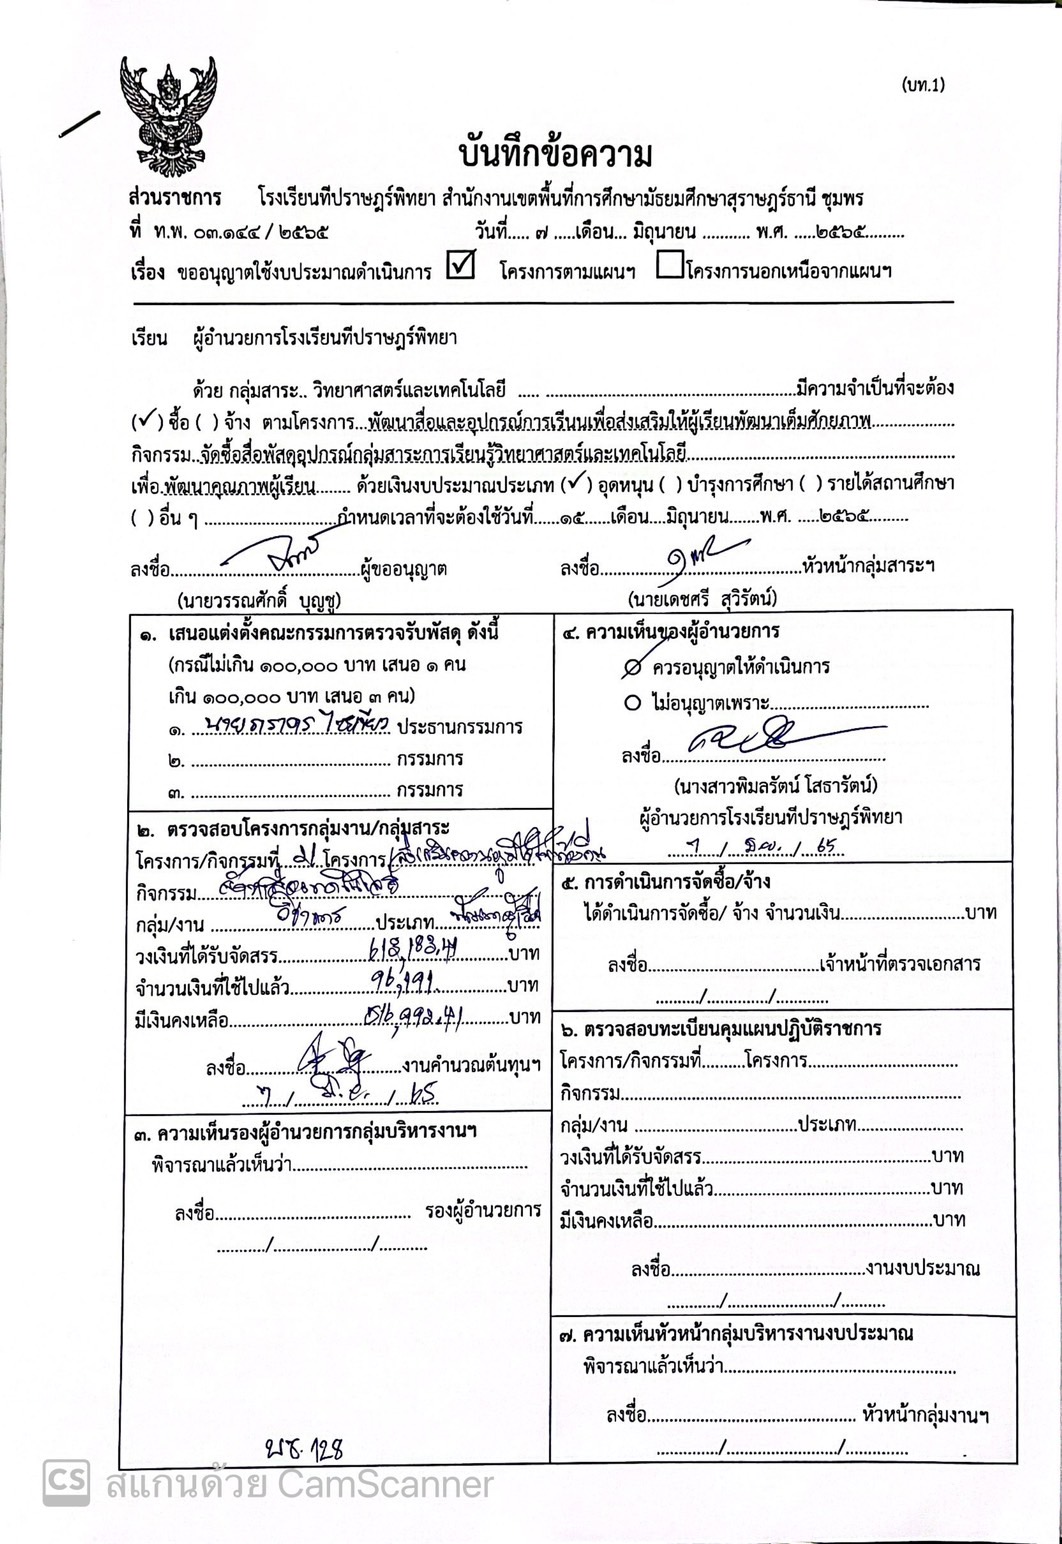 (บท.1)
บันทึกข้อความ
ส่วนราชการ โรงเรียนทีปราษฎร์พิทยา สำนักงานเขตพื้นที่การศึกษามัธยมศึกษาสุราษฎร์ธานี ชุมพร
ที่ ท.พ. ๐๓.๑๔๔ / ๒๕๖๕ วันที่..... ๗ .....เดือน... มิถุนายน ........... พ.ศ. .....๒๕๖๕.........
เรื่อง ขออนุญาตใช้งบประมาณดำเนินการ ☑ โครงการตามแผนฯ ☐ โครงการนอกเหนือจากแผนฯ
เรียน ผู้อำนวยการโรงเรียนทีปราษฎร์พิทยา
ด้วย กลุ่มสาระ.. วิทยาศาสตร์และเทคโนโลยี ..... ......................................................มีความจำเป็นที่จะต้อง
(✓) ซื้อ ( ) จ้าง ตามโครงการ...พัฒนาสื่อและอุปกรณ์การเรีนนเพื่อส่งเสริมให้ผู้เรียนพัฒนาเต็มศักยภาพ..................
กิจกรรม..จัดซื้อสื่อพัสดุอุปกรณ์กลุ่มสาระการเรียนรู้วิทยาศาสตร์และเทคโนโลยี..........................................................
เพื่อ.พัฒนาคุณภาพผู้เรียน........ ด้วยเงินงบประมาณประเภท (✓) อุดหนุน ( ) บำรุงการศึกษา ( ) รายได้สถานศึกษา
( ) อื่น ๆ .............................กำหนดเวลาที่จะต้องใช้วันที่.....๑๕......เดือน....มิถุนายน.......พ.ศ. .....๒๕๖๕.........
ลงชื่อ.........................................ผู้ขออนุญาต ลงชื่อ...........................................หัวหน้ากลุ่มสาระฯ
(นายวรรณศักดิ์ บุญชู) (นายเดชศรี สุวิรัตน์)
๑. เสนอแต่งตั้งคณะกรรมการตรวจรับพัสดุ ดังนี้
(กรณีไม่เกิน ๑๐๐,๐๐๐ บาท เสนอ ๑ คน
เกิน ๑๐๐,๐๐๐ บาท เสนอ ๓ คน)
๑. นาย ประธานกรรมการ
๒. ........................................... กรรมการ
๓. ........................................... กรรมการ
๒. ตรวจสอบโครงการกลุ่มงาน/กลุ่มสาระ
โครงการ/กิจกรรมที่ โครงการ
กิจกรรม
กลุ่ม/งาน วิชาการ ประเภท
วงเงินที่ได้รับจัดสรร 613,183.41 บาท
จำนวนเงินที่ใช้ไปแล้ว 96,191. บาท
มีเงินคงเหลือ 516,992.41 บาท
ลงชื่อ งานคำนวณต้นทุนฯ
7 / มิ.ย. / 65
๓. ความเห็นรองผู้อำนวยการกลุ่มบริหารงานฯ
พิจารณาแล้วเห็นว่า....................................................
ลงชื่อ........................................... รองผู้อำนวยการ
.........../...................../...........
๔. ความเห็นของผู้อำนวยการ
ควรอนุญาตให้ดำเนินการ
ไม่อนุญาตเพราะ...................................
ลงชื่อ.................................................
(นางสาวพิมลรัตน์ โสธารัตน์)
ผู้อำนวยการโรงเรียนทีปราษฎร์พิทยา
7 / มิ.ย. / 65
๕. การดำเนินการจัดซื้อ/จ้าง
ได้ดำเนินการจัดซื้อ/ จ้าง จำนวนเงิน...........................บาท
ลงชื่อ......................................เจ้าหน้าที่ตรวจเอกสาร
........../............../...........
๖. ตรวจสอบทะเบียนคุมแผนปฏิบัติราชการ
โครงการ/กิจกรรมที่.........โครงการ.................................
กิจกรรม...........................................................................
กลุ่ม/งาน ....................................ประเภท.......................
วงเงินที่ได้รับจัดสรร..................................................บาท
จำนวนเงินที่ใช้ไปแล้ว...............................................บาท
มีเงินคงเหลือ.............................................................บาท
ลงชื่อ...........................................งานงบประมาณ
............/......................./..........
๗. ความเห็นหัวหน้ากลุ่มบริหารงานงบประมาณ
พิจารณาแล้วเห็นว่า...................................................
ลงชื่อ.............................................. หัวหน้ากลุ่มงานฯ
............../........................./..............
บธ. 128
CS สแกนด้วย CamScanner